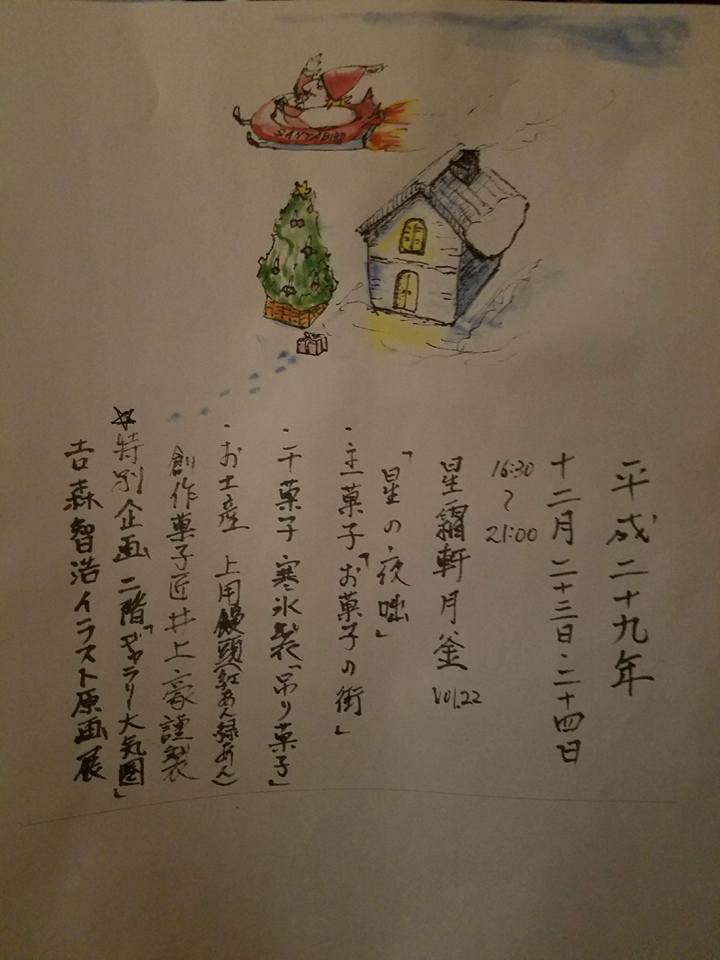 SANTABIRD
平成二十九年
十二月二十三日・二十四日
16:30
〜
21:00
星霜軒月釜 vol.22
「星の夜咄」
・主菓子「お菓子の街」
・干菓子 寒氷製「吊り菓子」
・お土産 上用饅頭(紅あん緑あん)
創作菓子匠井上豪謹製
☆特別企画 二階「ギャラリー大気圏」
吉森智浩イラスト原画展